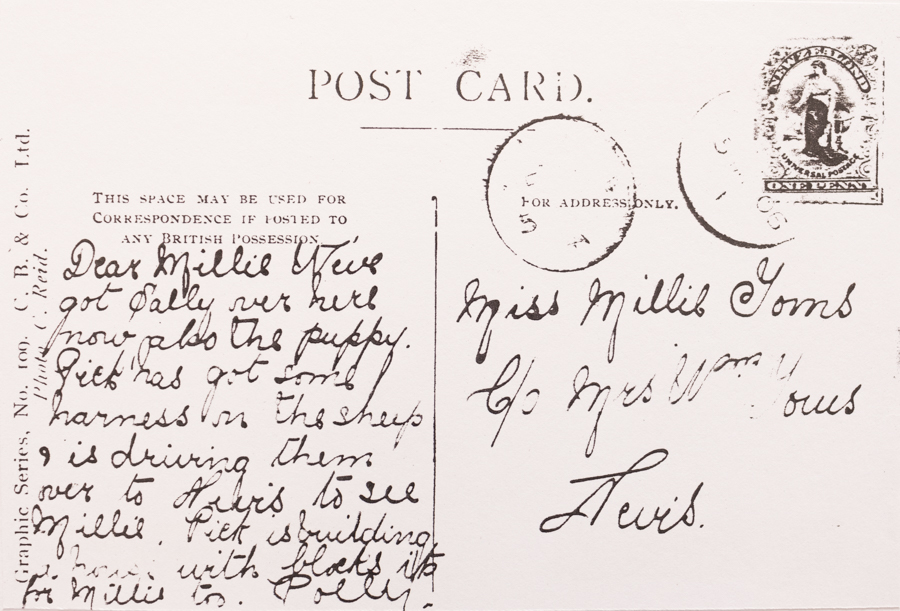 POST CARD.
THIS SPACE MAY BE USED FOR
CORRESPONDENCE IF POSTED TO
ANY BRITISH POSSESSION
FOR ADDRESS ONLY.
NEW ZEALAND
UNIVERSAL POSTAGE
ONE PENNY
Graphic Series, No. 109. C. B. & Co. Ltd.
Photo C. Reid.
Dear Millie We've
got Sally over here
now also the puppy.
Pick has got some
harness on the sheep
& is driving them
over to Nevis to see
Millie. Pick is building
a house with blocks its
for Millie too. Polly.
Miss Millie Toms
C/o Mrs Wm Toms
Nevis.